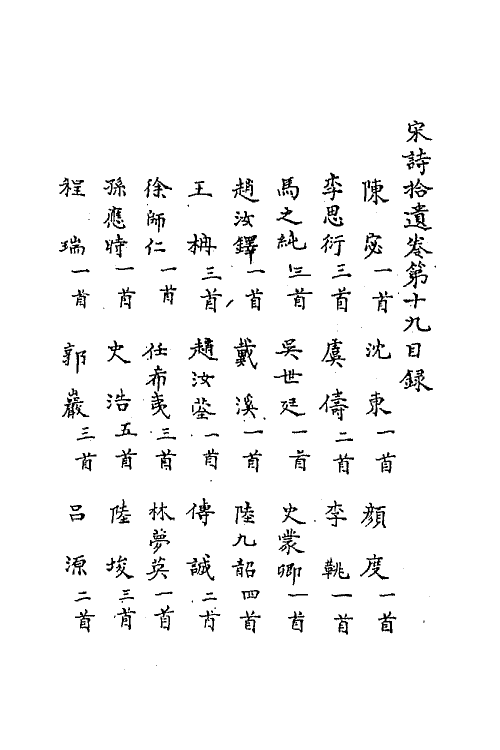 宋詩拾遺卷第十九目錄
陳宓一首 沈東一首 顏度一首
李思衍三首 虞儔二首 李䩭一首
馬之純三首 吳世延一首 史蒙卿一首
趙汝鐸一首 戴溪一首 陸九韶四首
王柟三首 趙汝 一首 傅誠二首
徐師仁一首 任希夷三首 林夢英一首
孫應時一首 史浩五首 陸埈三首
程瑞一首 郭巖三首 呂源二首